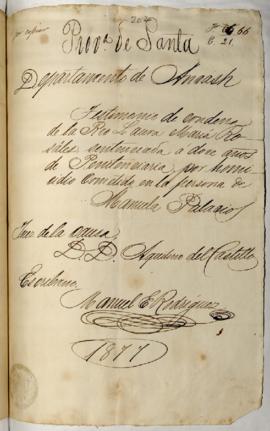 Prov.a de Santa
Departamento de Ancash
Testimonio de condena
de la Reo Laura Maria
sentenciada a doce años
de Penitenciaria por homi
cidio Cometido en la persona de
Manuela Palacios
Juez de la causa
D. D. Aquilino del Castillo
Escribano
Manuel E Rodriguez
1877